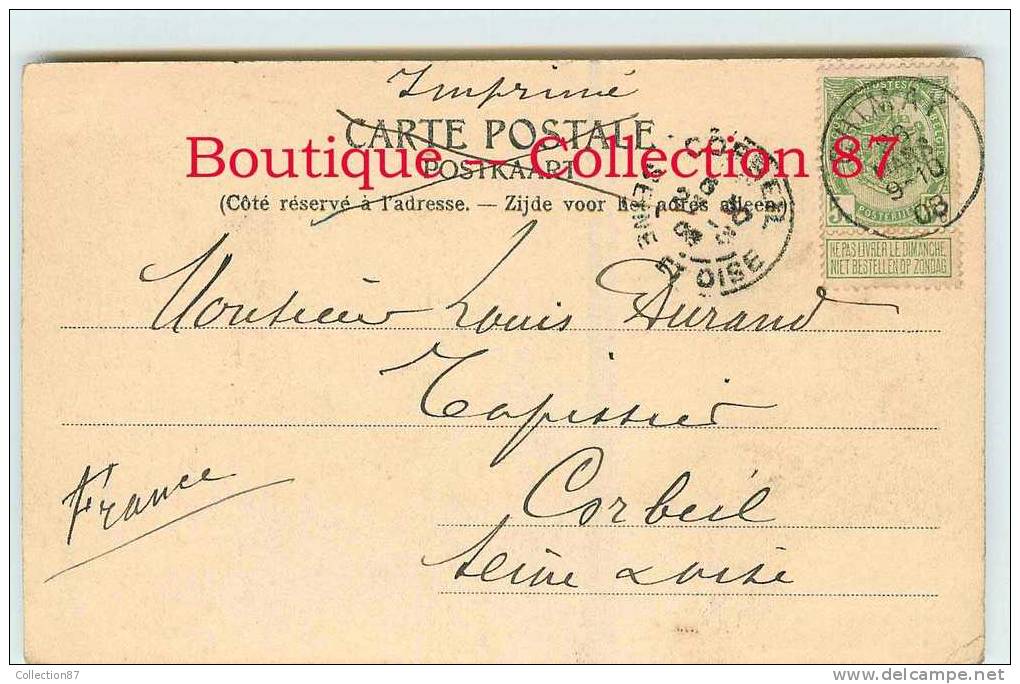 Imprimé
CARTE POSTALE
Boutique - Collection 87
POSTKAART
(Côté réservé à l'adresse. — Zijde voor het adres alleen.)
CORBEIL
SEINE
OISE
POSTES
9-10
03
POSTERIJEN
NE PAS LIVRER LE DIMANCHE
NIET BESTELLEN OP ZONDAG
Monsieur Louis Durand
Tapissier
France
Corbeil
Seine & Oise
Collection87
www.delcampe.net